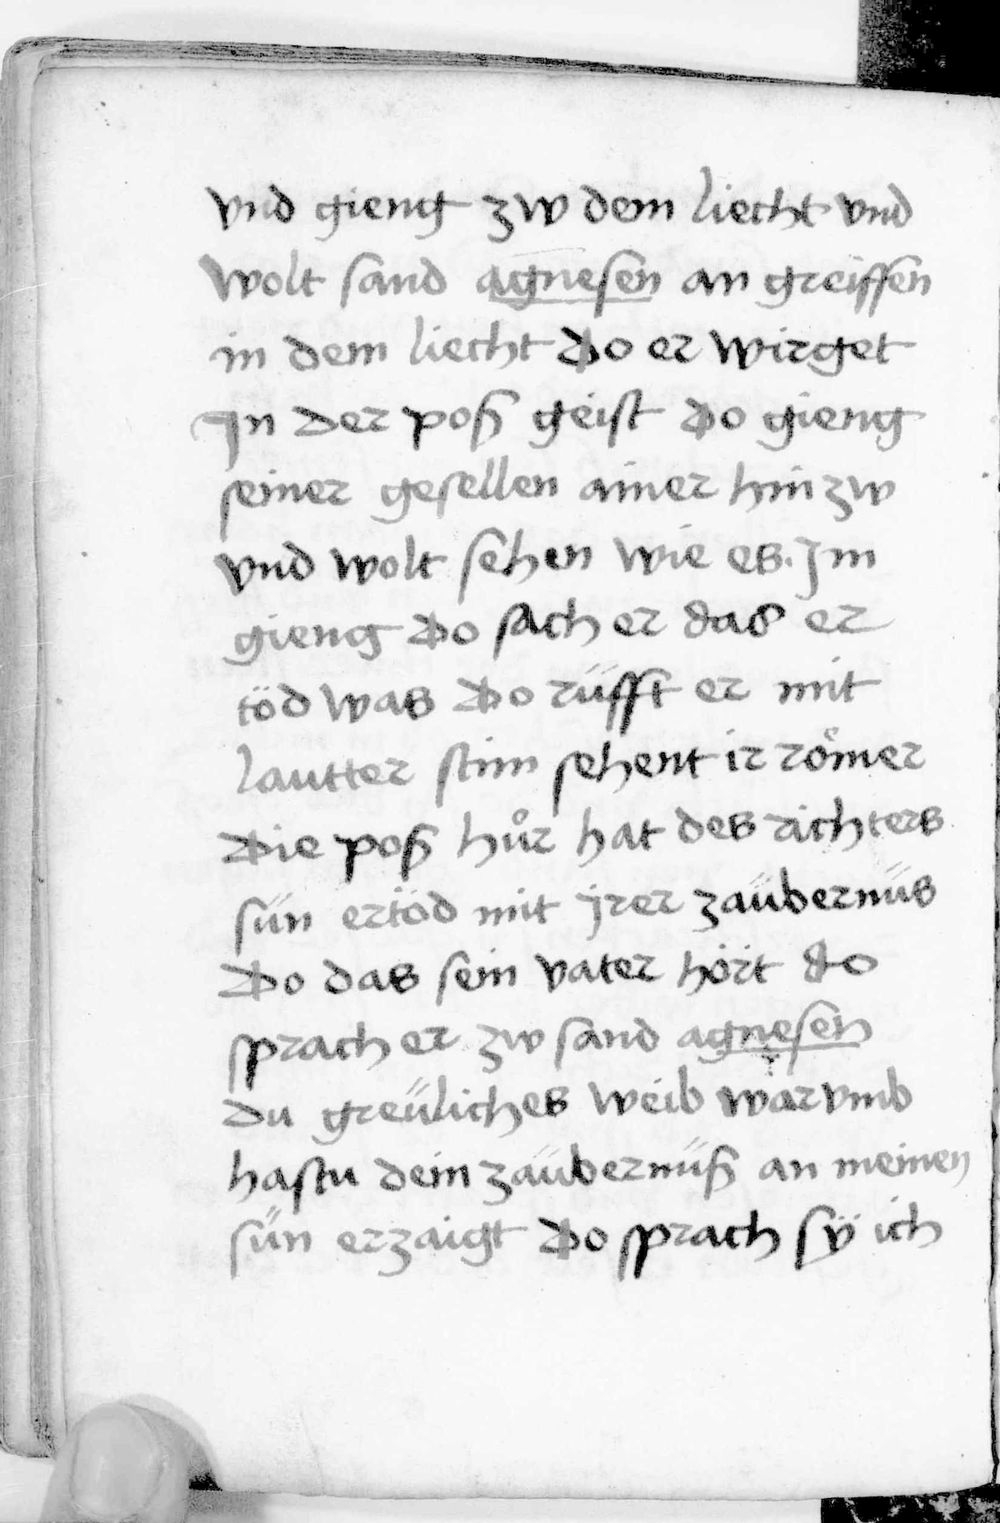 vnd gieng zw dem liecht vnd
wolt sand agnesen an greiffen
in dem liecht Do er wirget
In der poß geist Do gieng
seiner gesellen ainer hin zw
vnd wolt sehen wie es. Im
gieng Do sach er das er
töd was Do rüfft er mit
lautter stim sehent ir römer
Die poß hůr hat des richters
sün ertöd mit jrer zaübernüs
Do das sein vater hört do
sprach er zw sand agnesen
du greüliches weib warvmb
hastu dein zaübernüß an meinen
sün erzaigt Do sprach sÿ ich